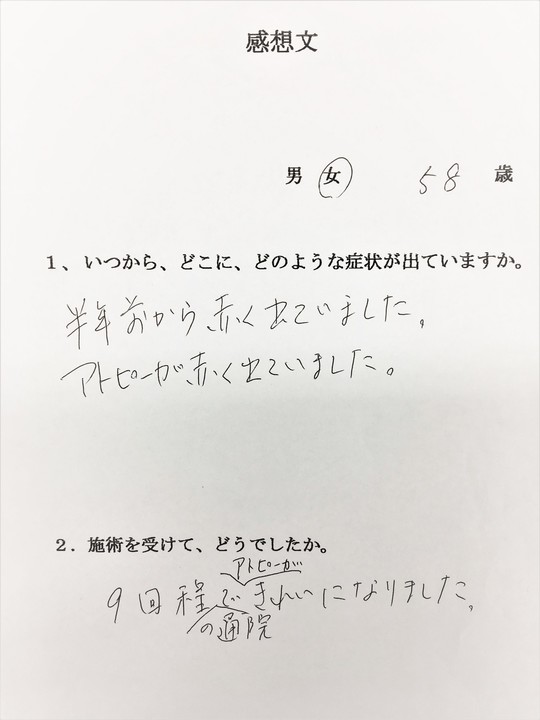 感想文
男 女 58 歳
1、いつから、どこに、どのような症状が出ていますか。
半年前から赤く出ていました。
アトピーが赤く出ていました。
2．施術を受けて、どうでしたか。
アトピーが
9回程できれいになりました。
の通院